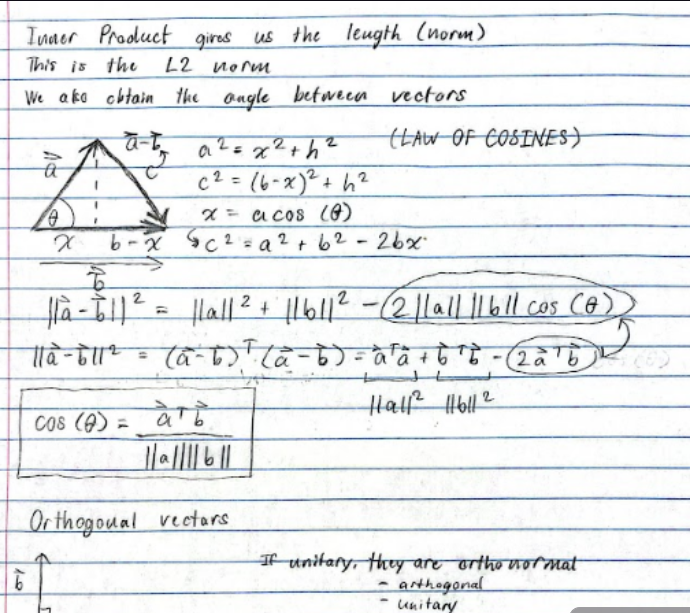 Inner Product gives us the length (norm)
This is the L2 norm
We also obtain the angle between vectors
(LAW OF COSINES)
a⃗
a⃗-b⃗
c
θ
x
b-x
b⃗
a² = x² + h²
c² = (b-x)² + h²
x = a cos (θ)
c² = a² + b² - 2bx
||a⃗ - b⃗||² = ||a||² + ||b||² - 2||a|| ||b|| cos (θ)
||a⃗-b⃗||² = (a⃗-b⃗)ᵀ·(a⃗-b⃗) = a⃗ᵀa⃗ + b⃗ᵀb⃗ - 2a⃗ᵀb⃗
||a||² ||b||²
cos (θ) = a⃗ᵀb⃗ / ||a||||b||
Orthogonal vectors
b⃗
If unitary, they are orthonormal
- orthogonal
- unitary